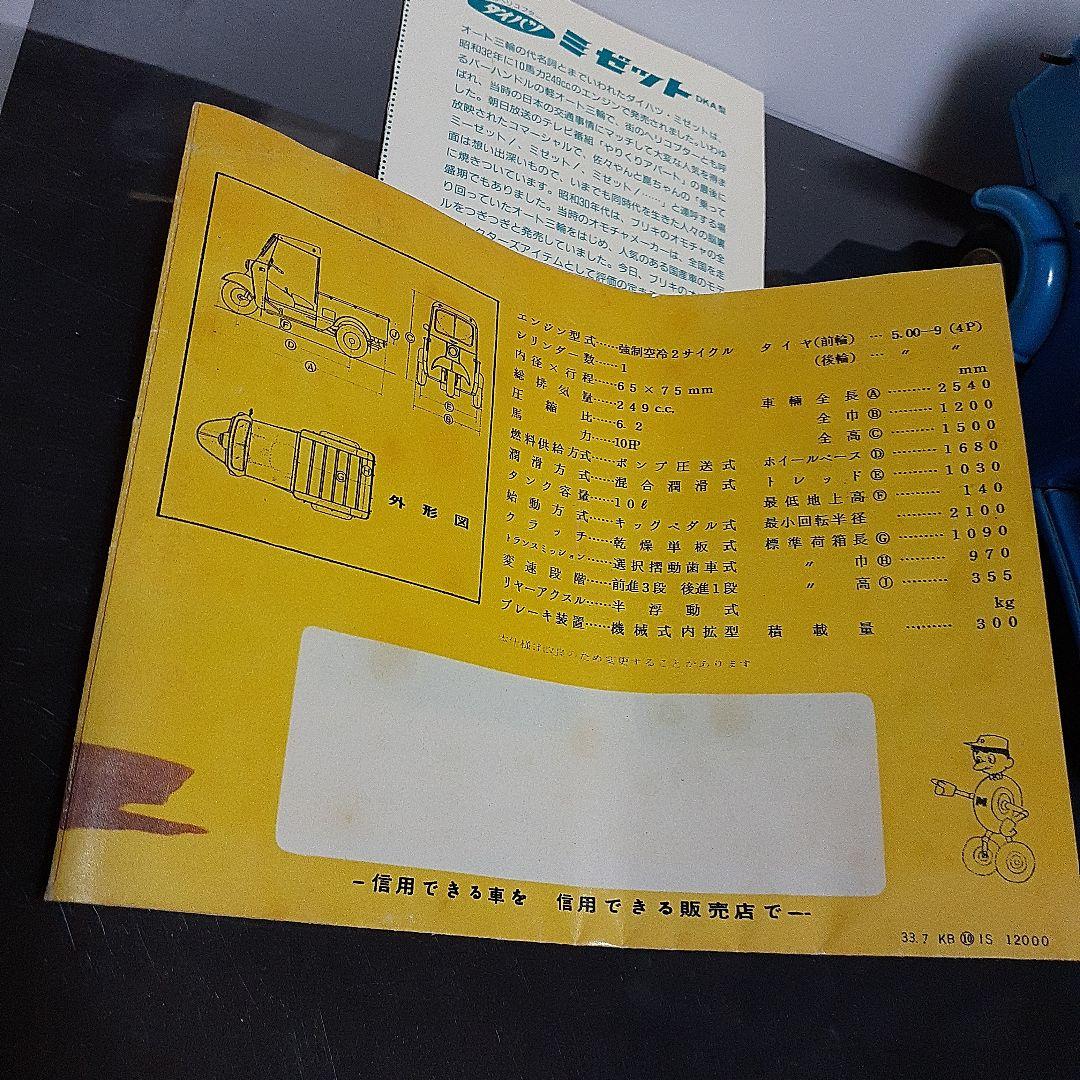 ダイハツ ミゼット DKA型
オート三輪の代名詞とまでいわれたダイハツ・ミゼットは、
昭和32年に10馬力249ccのエンジンで発売されました。いわゆ
るバーハンドルの軽オート三輪で、街のヘリコプターとも呼
ばれ、当時の日本の交通事情にマッチして大変な人気を得ま
した。朝日放送のテレビ番組「やりくりアパート」の最後に
放映されたコマーシャルで、佐々やんと島ちゃんの「乗って
ミーゼット!、ミゼット!、ミゼット!……」と連呼する場
面は想い出深いもので、いまでも同時代を生きた人々の脳裏
に焼きついています。昭和30年代は、ブリキのオモチャの全
盛期でもありました。当時のオモチャメーカーは、全国を走
り回っていたオート三輪をはじめ、人気のある国産車のモデ
ルをつぎつぎと発売していました。今日、ブリキのオ
クターズアイテムとして評価の定ま
外形図
A
B
C
D
E
F
G
H
J
エンジン型式……強制空冷2サイクル
シリンダー数……1
内径×行程……65×75mm
総排気量……249c.c.
圧縮比……6.2
馬力……10HP
燃料供給方式……ポンプ圧送式
潤滑方式……混合潤滑式
タンク容量……10ℓ
始動方式……キックペダル式
クラッチ……乾燥単板式
トランスミッション……選択摺動歯車式
変速段階……前進3段 後進1段
リヤーアクスル……半浮動式
ブレーキ装置……機械式内拡型
タイヤ(前輪)…5.00—9(4P)
(後輪)… 〃 〃
mm
車輛全長Ⓐ………2540
全巾Ⓑ………1200
全高Ⓒ………1500
ホイールベースⒹ………1680
トレッドⒺ………1030
最低地上高Ⓕ………140
最小回転半径………2100
標準荷箱長Ⓖ………1090
〃 巾Ⓗ………970
〃 高Ⓙ………355
kg
積載量………300
本仕様は改良のため変更することがあります
M
—信用できる車を 信用できる販売店で—
33.7 KB⑩IS 12000